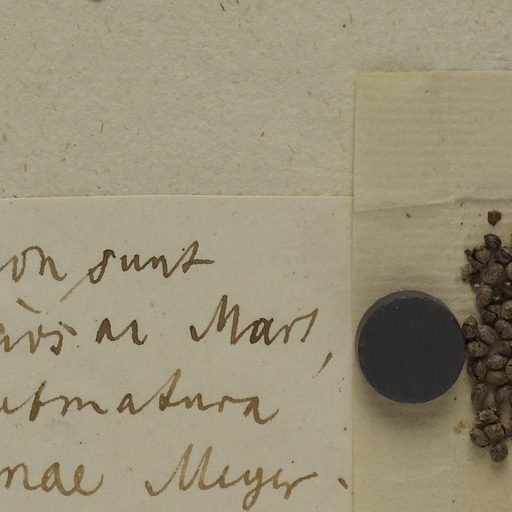 on sunt
ar Mart,
utmatura
nae Meyer.